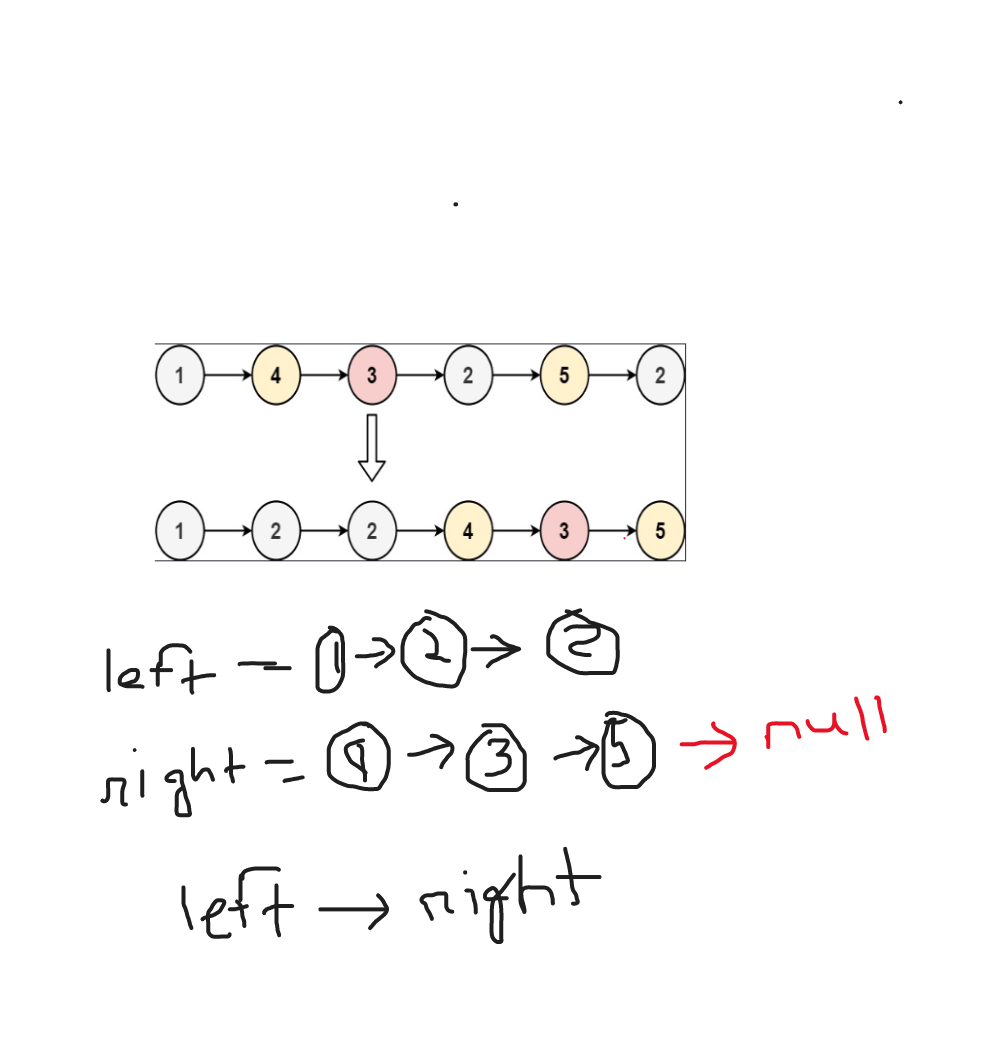 1 4 3 2 5 2
1 2 2 4 3 5
left = 1 → 2 → 2
right = 4 → 3 → 5 → null
left → right